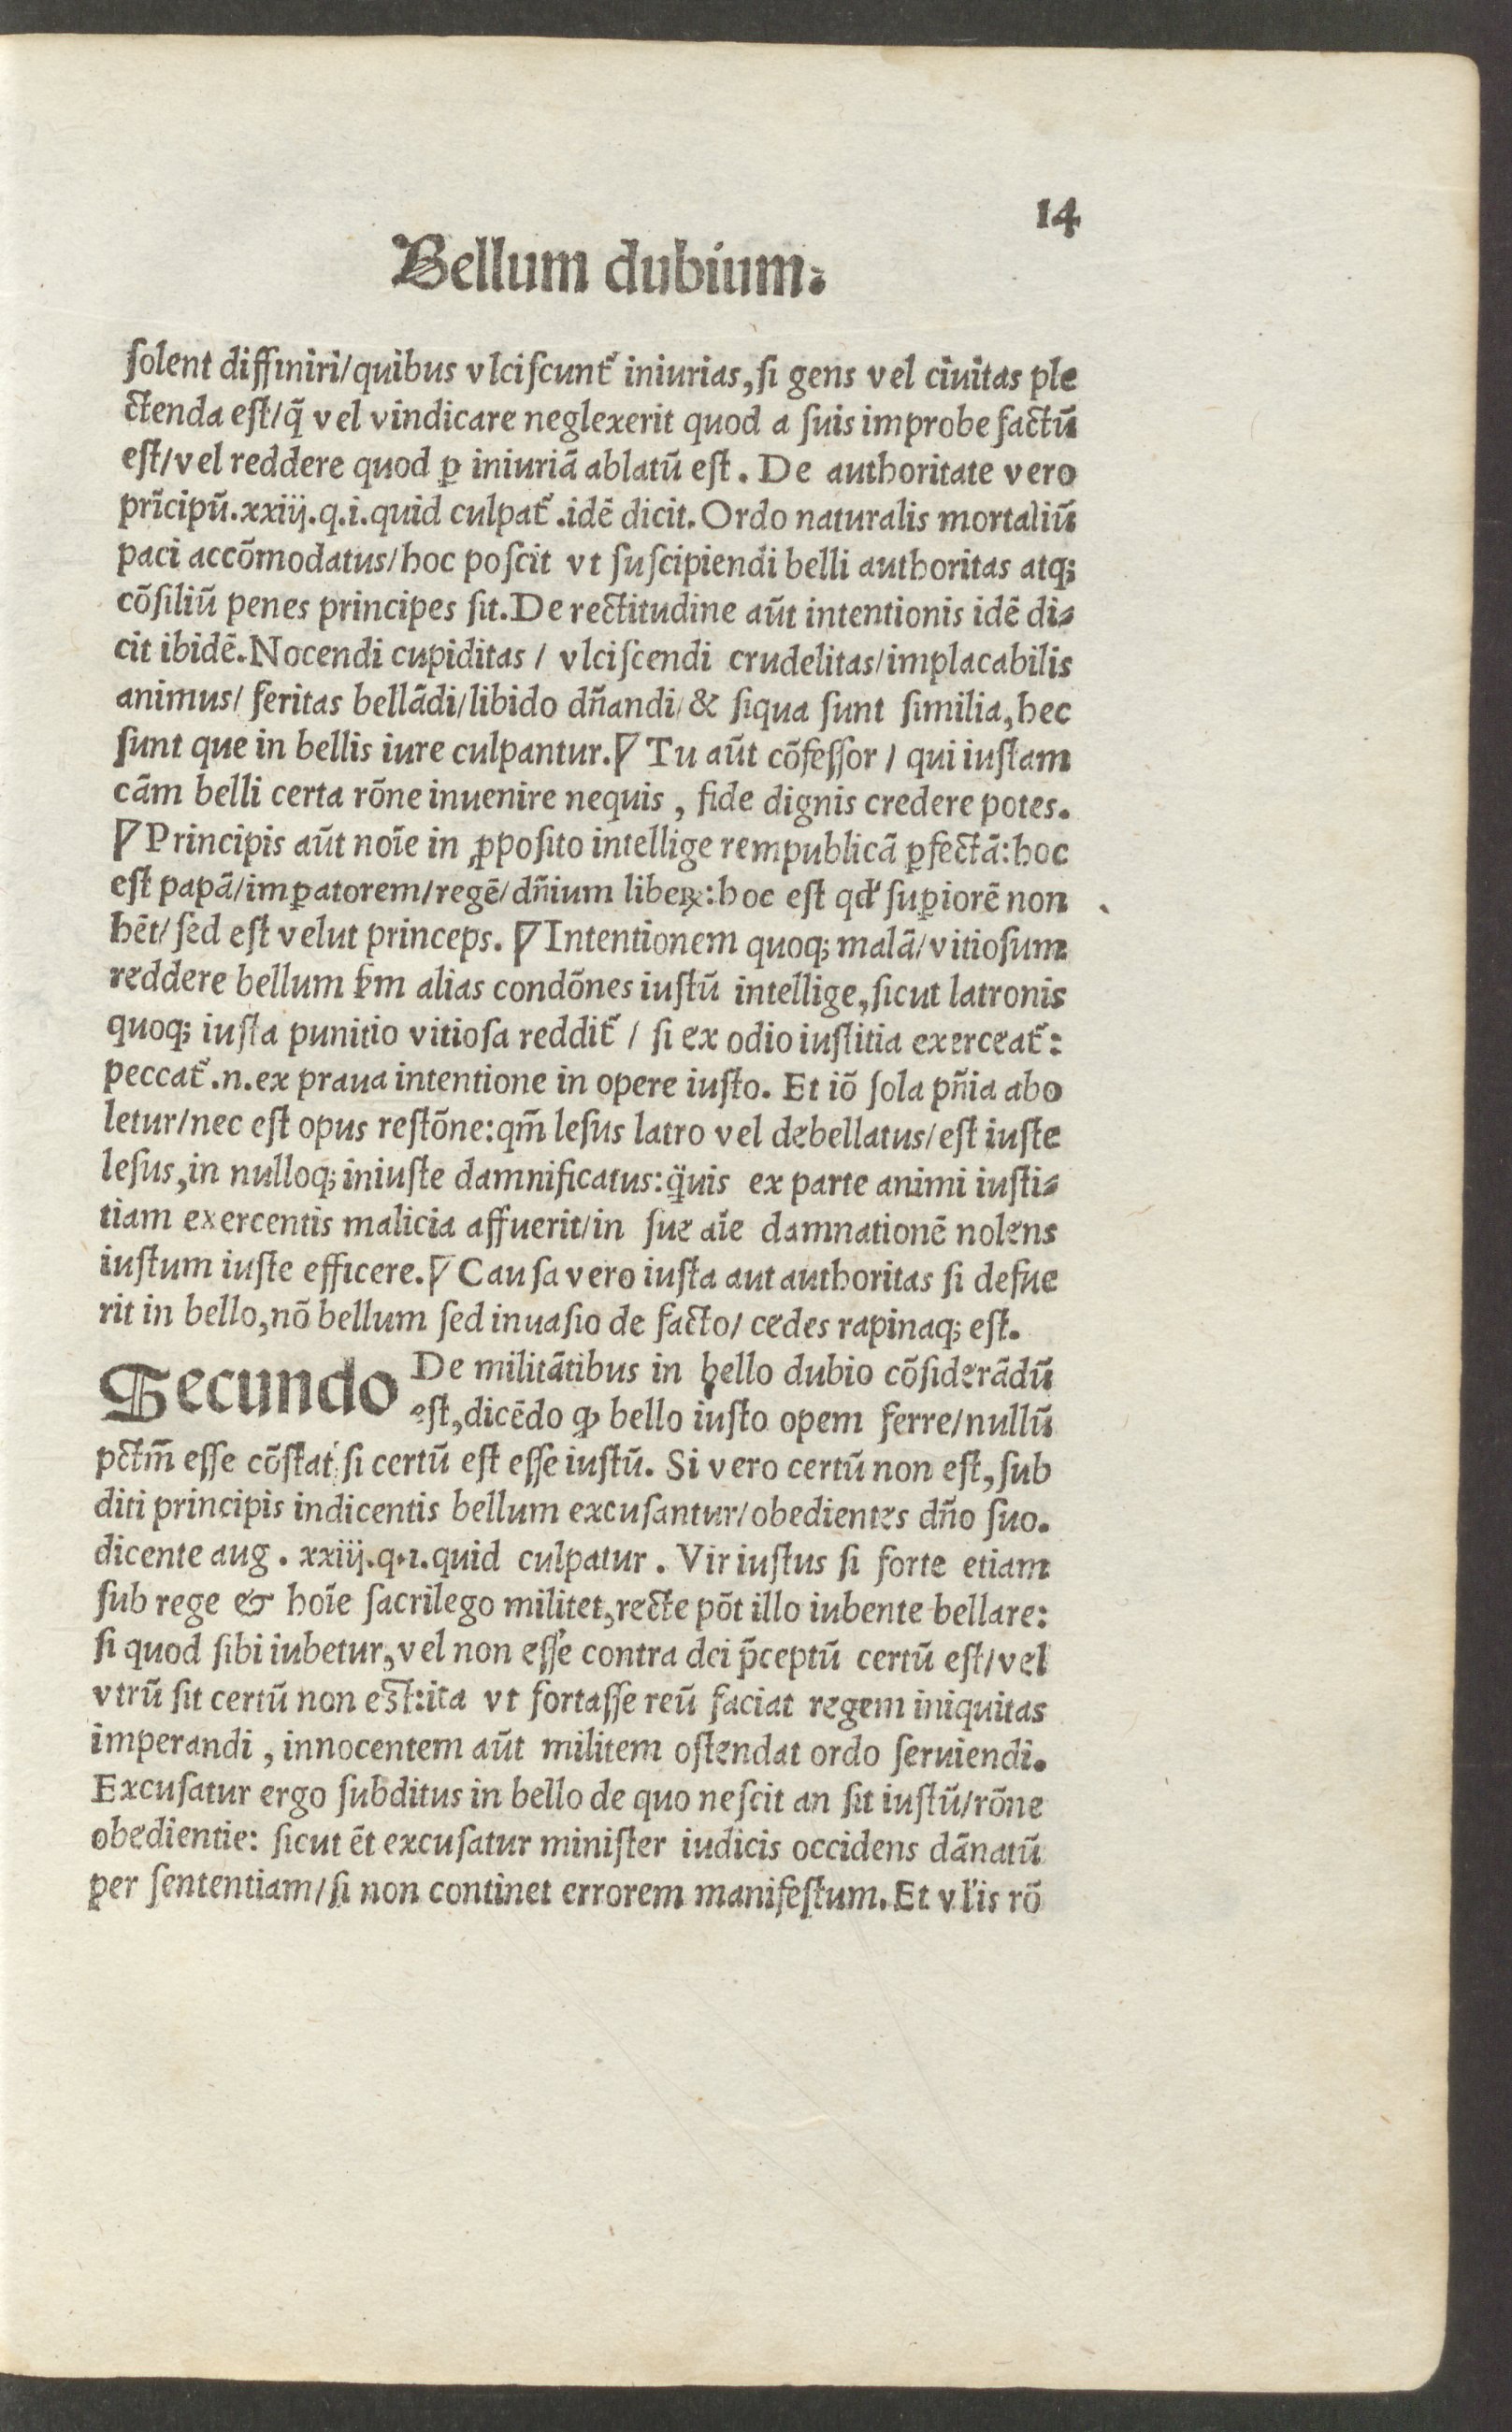 14
Bellum dubium.
ſolent diffiniri/quibus vlciſcunt᷑ iniurias, ſi gens vel ciuitas ple
ctenda eſt/q̃ vel vindicare neglexerit quod a ſuis improbe factũ
eſt/vel reddere quod ꝑ iniuriã ablatũ eſt. De authoritate vero
prĩcipũ.xxiij.q.i.quid culpat᷑.idẽ dicit. Ordo naturalis mortaliũ
paci accõmodatus/hoc poſcit vt ſuſcipiendi belli authoritas atq;
cõſiliũ penes principes ſit. De rectitudine aũt intentionis idẽ di⸗
cit ibidẽ. Nocendi cupiditas / vlciſcendi crudelitas/implacabilis
animus/ feritas bellãdi/libido dñandi/ & ſiqua ſunt ſimilia, hec
ſunt que in bellis iure culpantur. ¶ Tu aũt cõfeſſor / qui iuſtam
cãm belli certa rõne inuenire nequis , fide dignis credere potes.
¶ Principis aũt noĩe in ꝓpoſito intellige rempublicã ꝑfectã: hoc
eſt papã/imꝑatorem/regẽ/dñium liberꝝ: hoc eſt qđ ſuꝑiorẽ non
hẽt/ ſed eſt velut princeps. ¶ Intentionem quoq; malã/ vitioſum
reddere bellum ẜm alias condõnes iuſtũ intellige, ſicut latronis
quoq; iuſta punitio vitioſa reddit᷑ / ſi ex odio iuſtitia exerceat᷑:
peccat᷑.n.ex praua intentione in opere iuſto. Et iõ ſola pñia abo
letur/nec eſt opus reſtõne: qm̃ leſus latro vel debellatus/eſt iuſte
leſus, in nulloq; iniuſte damnificatus: q̃uis ex parte animi iuſti⸗
tiam exercentis malicia affuerit/in ſue aĩe damnationẽ nolens
iuſtum iuſte efficere. ¶ Cauſa vero iuſta aut authoritas ſi defue
rit in bello, nõ bellum ſed inuaſio de facto/ cedes rapinaq; eſt.
Secundo De militãtibus in bello dubio cõſiderãdũ
eſt, dicẽdo ꝙ bello iuſto opem ferre/nullũ
pctm̃ eſſe cõſtat/ ſi certũ eſt eſſe iuſtũ. Si vero certũ non eſt, ſub
diti principis indicentis bellum excuſantur/obedientes dño ſuo.
dicente aug . xxiij.q.1.quid culpatur . Vir iuſtus ſi forte etiam
ſub rege & hoĩe ſacrilego militet, recte põt illo iubente bellare:
ſi quod ſibi iubetur, vel non eſſe contra dei p̃ceptũ certũ eſt/vel
vtrũ ſit certũ non eſt: ita vt fortaſſe reũ faciat regem iniquitas
imperandi , innocentem aũt militem oſtendat ordo ſeruiendi.
Excuſatur ergo ſubditus in bello de quo neſcit an ſit iuſtũ/rõne
obedientie: ſicut ẽt excuſatur miniſter iudicis occidens dãnatũ
per ſententiam/ſi non continet errorem manifeſtum. Et vl'is rõ